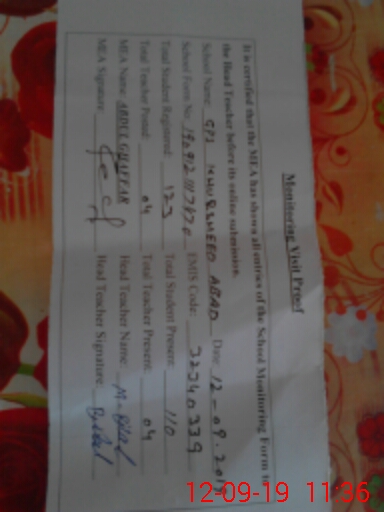 Monitoring Visit Proof
It is certified that the MEA has shown all entries of the School Monitoring Form to
the Head Teacher before its online submission.
School Name: GPS KHURSHEED ABAD Date: 12-09-2019
School Form No. EMIS Code: 32340339
Total Student Registered: 123 Total Student Present: 110
Total Teacher Posted: 04 Total Teacher Present: 04
MEA Name: ABDUL GHAFFAR Head Teacher Name: M-Bilal
MEA Signature: Head Teacher Signature: Bilal
12-09-19 11:36